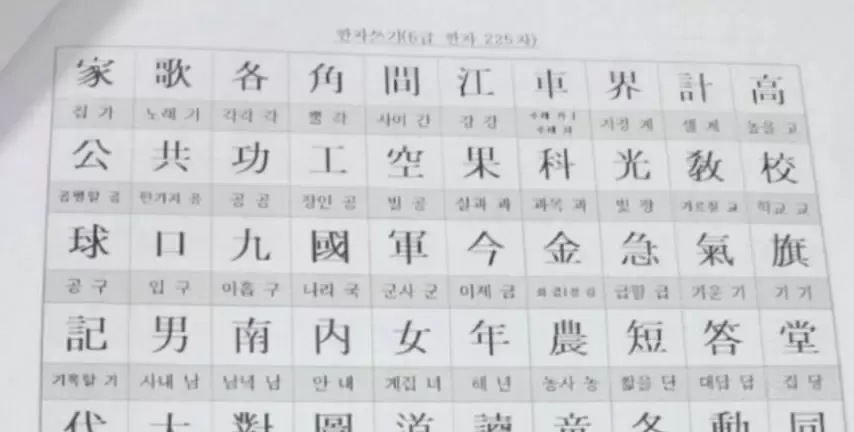 한자쓰기(6급 한자 225자)
家 歌 各 角 間 江 車 界 計 高
집 가 노래 가 각각 각 뿔 각 사이 간 강 강 지경 계 셀 계 높을 고
公 共 功 工 空 果 科 光 敎 校
공평할 공 한가지 공 공 공 장인 공 빌 공 실과 과 과목 과 빛 광 가르칠 교 학교 교
球 口 九 國 軍 今 金 急 氣 旗
공 구 입 구 아홉 구 나라 국 군사 군 이제 금 급할 급 기운 기 기 기
記 男 南 內 女 年 農 短 答 堂
기록할 기 사내 남 남녘 남 안 내 계집 녀 해 년 농사 농 짧을 단 대답 답 집 당
代 大 對 圖 道 讀 童 冬 動 同